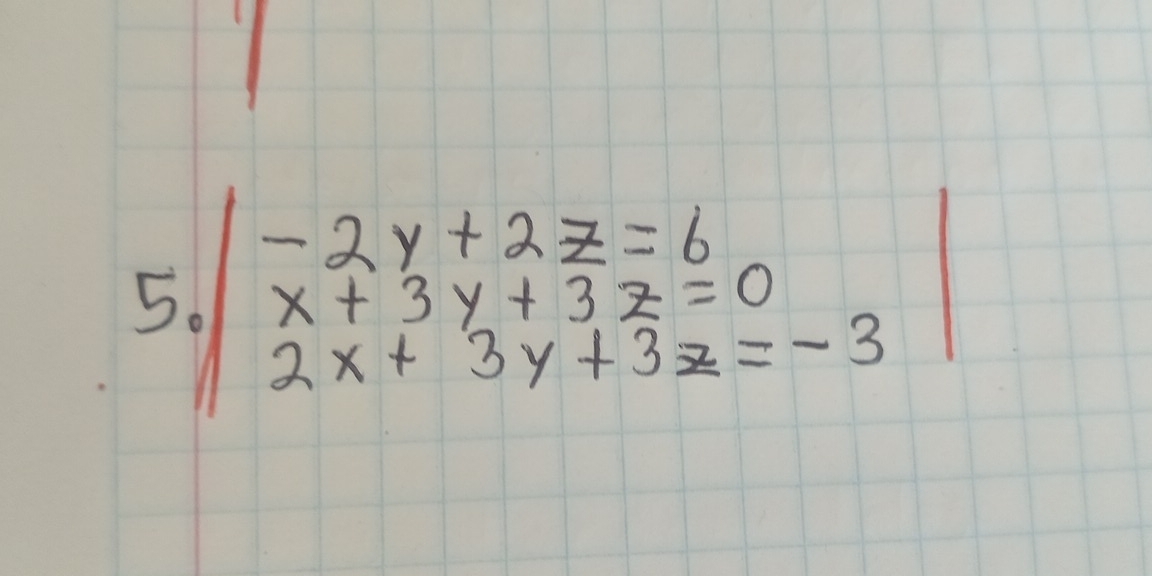 5. - 2y + 2z = 6
x + 3y + 3z = 0
2x + 3y + 3z = - 3